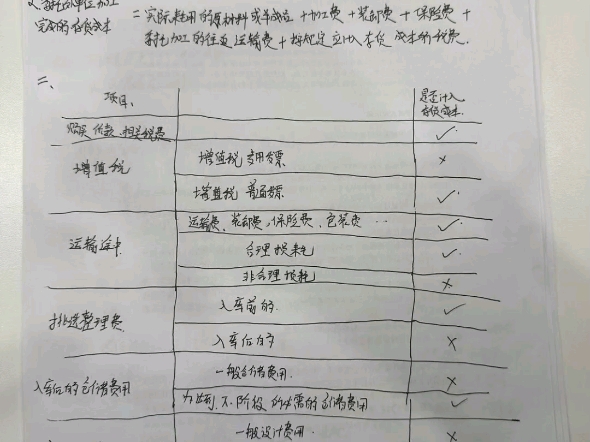 2、委托外单位加工
完成的存货成本 = 实际耗用的原材料或半成品 + 加工费 + 装卸费 + 保险费 +
委托加工的往返运输费 + 按规定应计入存货成本的税费.
二、
项目、 是否计入存货成本.
购买价款、相关税费 ✓
增值税 增值税专用发票 ×
增值税普通发票 ✓
运输途中 运输费、装卸费、保险费、包装费 ·· ✓
合理损耗 ✓
非合理损耗 ×
挑选整理费 入库前的. ✓
入库后的 ×
入库后的仓储费用 一般仓储费用. ×
为达到下一阶段所必需的仓储费用 ✓
一般设计费用 ×